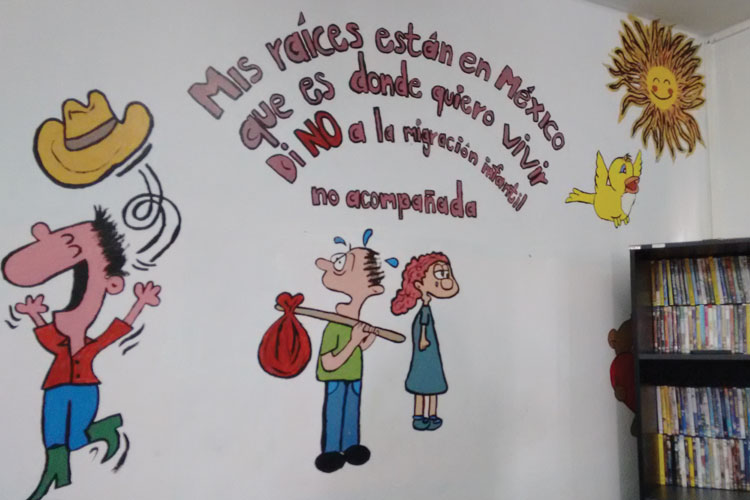 Mis raíces están en México
que es donde quiero vivir
Di NO a la migración infantil
no acompañada